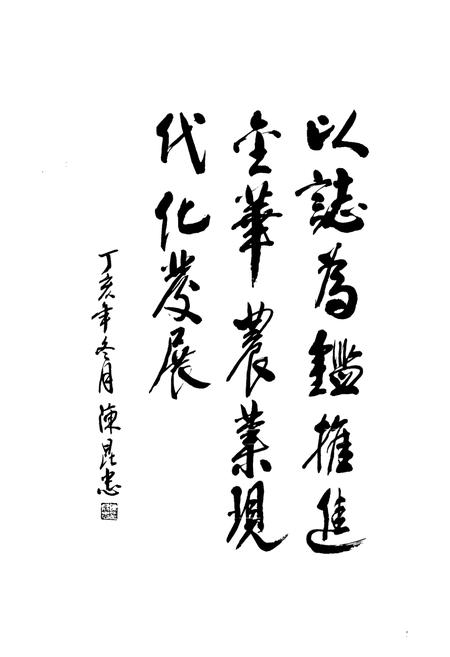 以誌為鑑推進
金華農業現
代化發展
丁亥年冬月陳昆忠